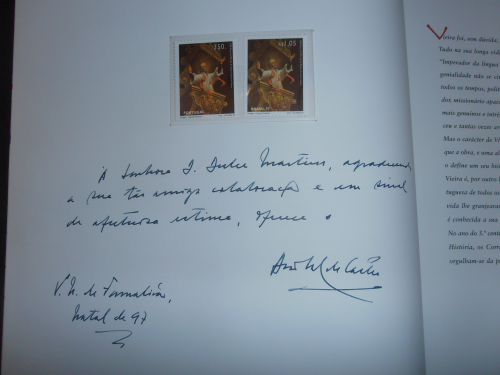 350.
R$1,05
PORTUGAL
BRASIL 97
À Senhora D. Dulce Martins, agradecendo
a sua tão amiga colaboração e em sinal
de afetuosa estima, oferece o
de Castro
V. N. de Famalicão,
Natal de 97
Vieira foi, sem dúvida,
Tudo na sua longa vid
"Imperador da língua
genialidade não se ci
todos os tempos, polít
dor, missionário apaix
mais genuínos e intrin
ceu e tantas vezes ar
Mas o carácter de Vi
que a obra, e uma al
o define um seu bió
Vieira é, por outro l
tuguesa de todos os
vida lhe granjearam
é conhecida a sua
No ano do 3.º cente
História, os Corr
orgulham-se da p